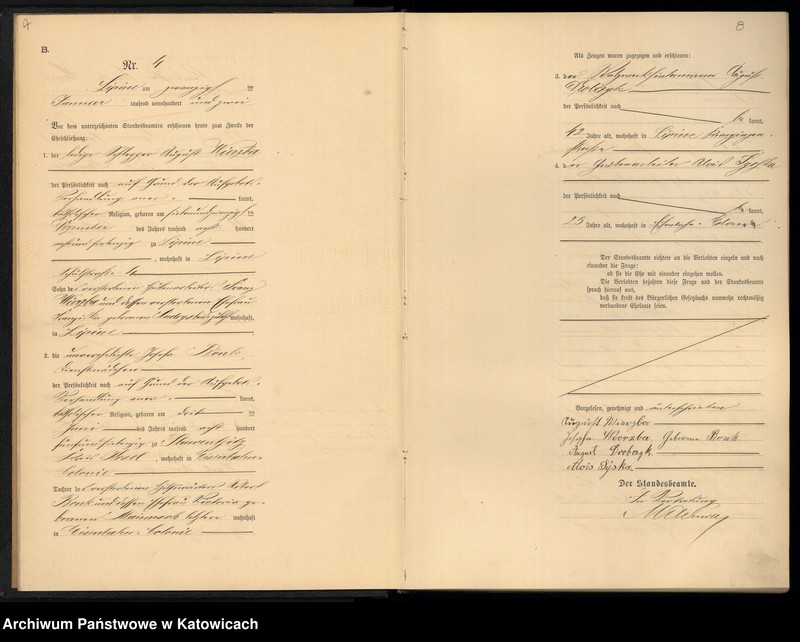 7
B.
Nr. 4
Lipine am zwanzigsten
Januar tausend neunhundert und zwei
Vor dem unterzeichneten Standesbeamten erschienen heute zum Zwecke der
Eheschließung:
1. der ledige Schlepper August Wierzba
der Persönlichkeit nach auf Grund der Aufgebots-
Verhandlung aner- kannt,
katholischer Religion, geboren am siebenundzwanzigsten
des Jahres tausend acht hundert
zu Lipine
, wohnhaft in Lipine
Schulstraße 4
Sohn des verstorbenen Franz
Wierzba und dessen verstorbenen Ehefrau
geborenen wohnhaft
in Lipine
2. die unverehelichte Josefa Bonk,
Dienstmädchen
der Persönlichkeit nach auf Grund der Aufgebots-
Verhandlung aner- kannt,
katholischer Religion, geboren am dritten
Juni des Jahres tausend acht hundert
fünfundsiebenzig zu Slawentzitz
Kreis Kosel, wohnhaft in Eisenbahn-
Colonie
Tochter des verstorbenen
Bonk und dessen Ehefrau Victoria ge-
borenen wohnhaft
in Eisenbahn-Colonie
8
Als Zeugen waren zugezogen und erschienen:
3. der August
Drobczyk
der Persönlichkeit nach
be kannt,
42 Jahre alt, wohnhaft in Lipine
straße
4. der Grubenarbeiter Alois Syska
der Persönlichkeit nach
be kannt,
25 Jahre alt, wohnhaft in Eisenbahn-Colonie
Der Standesbeamte richtete an die Verlobten einzeln und nach
einander die Frage:
ob sie die Ehe mit einander eingehen wollen.
Die Verlobten bejahten diese Frage und der Standesbeamte
sprach hierauf aus,
daß sie kraft des Bürgerlichen Gesetzbuchs nunmehr rechtmäßig
verbundene Eheleute seien.
Vorgelesen, genehmigt und unterschrieben
August Wierzba
Josefa Wierzba Geborene Bonk
August Drobczyk
Alois Syska
Der Standesbeamte.
In Vertretung
Archiwum Państwowe w Katowicach